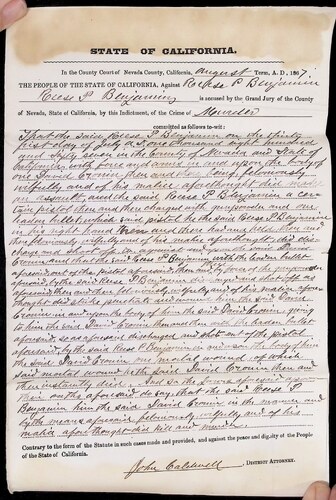 STATE OF CALIFORNIA.
In the County Court of Nevada County, California, August Term, A. D., 1867
THE PEOPLE OF THE STATE OF CALIFORNIA, Against Reese P Benjamin
Reese P. Benjamin is accused by the Grand Jury of the County
of Nevada, State of California, by this Indictment, of the Crime of Murder
committed as follows, to-wit:
That the said Reese P Benjamin on the thirty
first day of July A.D. one thousand eight hundred
and sixty seven in the County of Nevada and State of
California with force and arms in and upon the body of
one David Cronin then and there being, feloniously
wilfully and of his malice aforethought did make
an assault, and the said Reese P Benjamin a
pistol then and there charged with gunpowder and one
leaden bullet which said pistol he the said Reese P Benjamin
in his right hand then and there had and held, then and
there feloniously wilfully and of his malice aforethought did
and shoot off to, against and upon the said David
Cronin and that the said Reese P Benjamin with the leaden bullet
aforesaid out of the pistol aforesaid then and there by force of the gunpowder
aforesaid by the said Reese P. Benjamin discharged and shot off as
aforesaid then and there feloniously wilfully and of his malice afore-
thought did strike penetrate and wound him the said David
Cronin in and upon the body of him the said David Cronin giving
to him the said David Cronin then and there with the leaden bullet
aforesaid so as aforesaid discharged and shot out of the pistol
aforesaid by the said Reese P Benjamin in and upon the body of him
the said David Cronin one mortal wound of which
said mortal wound he the said David Cronin then and
there instantly died. And so the Jurors aforesaid upon
their oaths aforesaid do say, that the said Reese P
Benjamin him the said David Cronin in the manner and
by the means aforesaid, feloniously wilfully and of his
malice afore-thought did kill and murder
Contrary to the form of the Statute in such cases made and provided, and against the peace and dignity of the People
of the State of California.
John Caldwell, DISTRICT ATTORNEY.